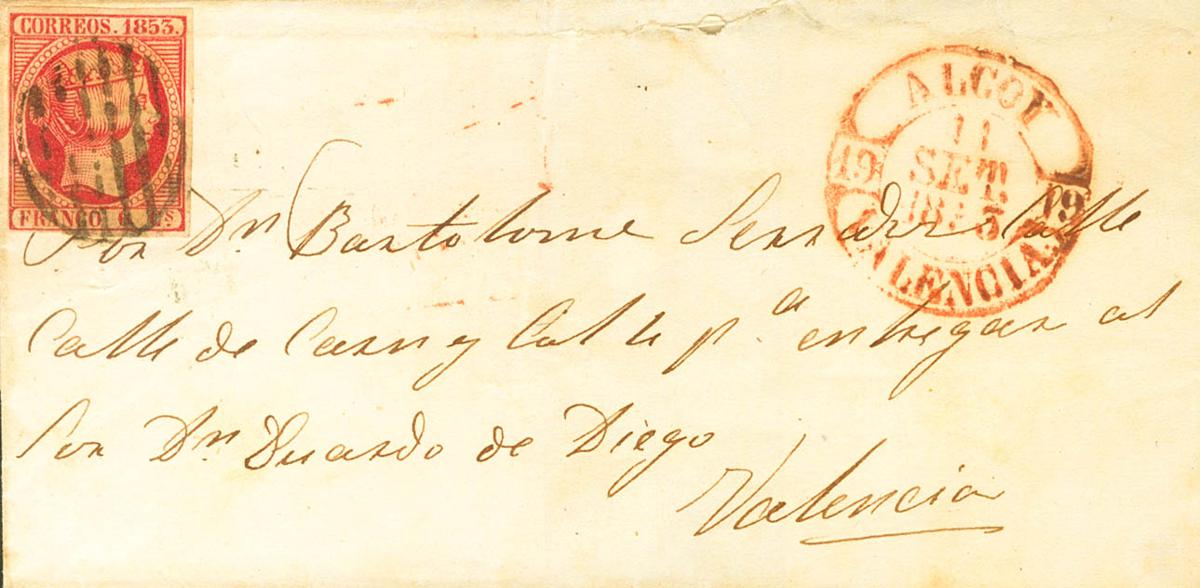 CORREOS. 1853.
FRANCO 6 Cs
ALCOY
11
SET.
1853
19 19
VALENCIA.
Sor Dn Bartolome Calle
Calle de pa entregar al
Sor Dn Duardo de Diego
Valencia